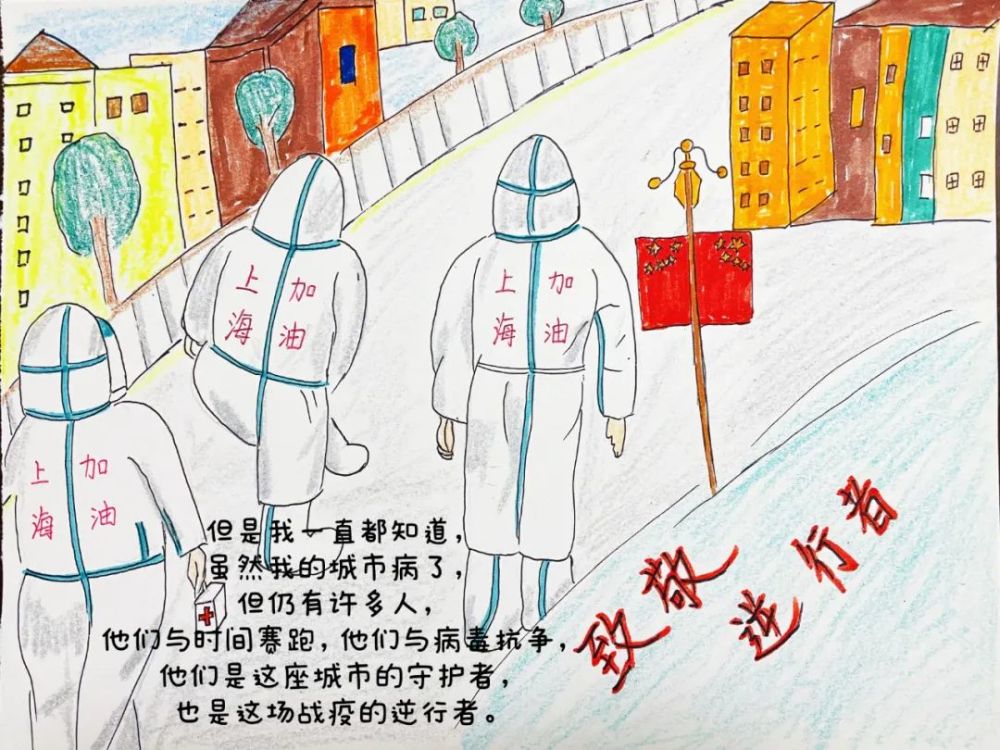 上海
加油
上海
加油
上海
加油
但是我一直都知道，
虽然我的城市病了，
但仍有许多人，
他们与时间赛跑，他们与病毒抗争，
他们是这座城市的守护者，
也是这场战疫的逆行者。
致敬
逆行者